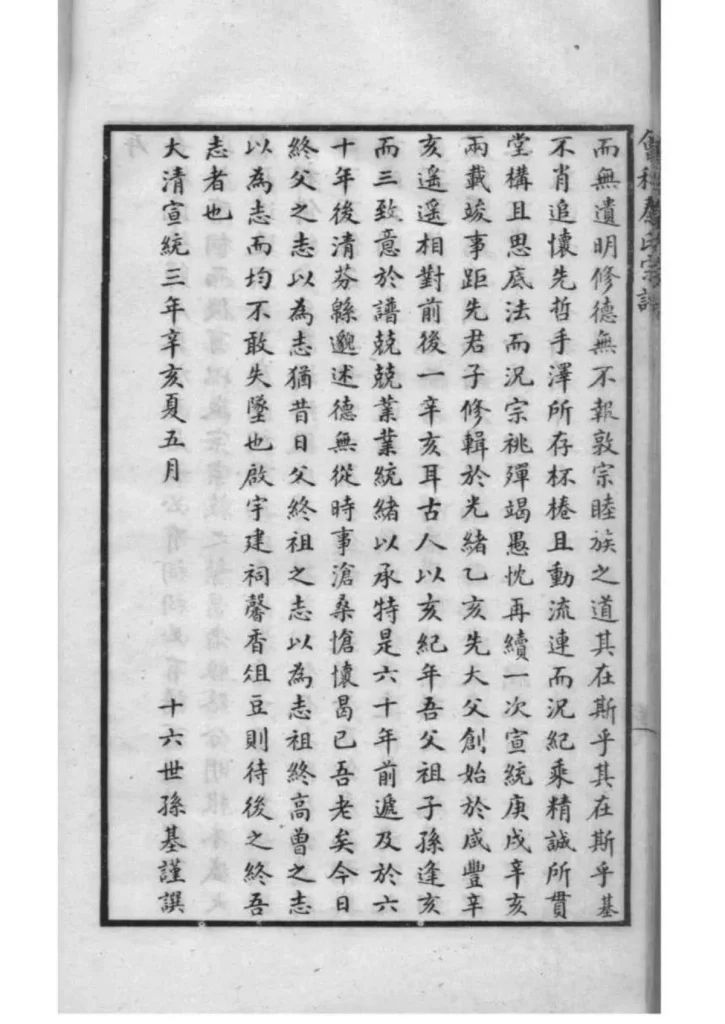 而無遺明修德無不報敦宗睦族之道其在斯乎其在斯乎基
不肖追懷先哲手澤所存杯棬且動流連而況紀乘精誠所貫
堂構且思底法而況宗祧彈竭愚忱再續一次宣統庚戌辛亥
兩載竣事距先君子修輯於光緒乙亥先大父創始於咸豐辛
亥遥遥相對前後一辛亥耳古人以亥紀年吾父祖子孫逢亥
而三致意於譜兢兢業業統緒以承特是六十年前遞及於六
十年後清芬緜邈述德無從時事滄桑愴懷曷已吾老矣今日
終父之志以為志猶昔日父終祖之志以為志祖終高曾之志
以為志而均不敢失墜也啟宇建祠馨香俎豆則待後之終吾
志者也
大清宣統三年辛亥夏五月 十六世孫基謹譔